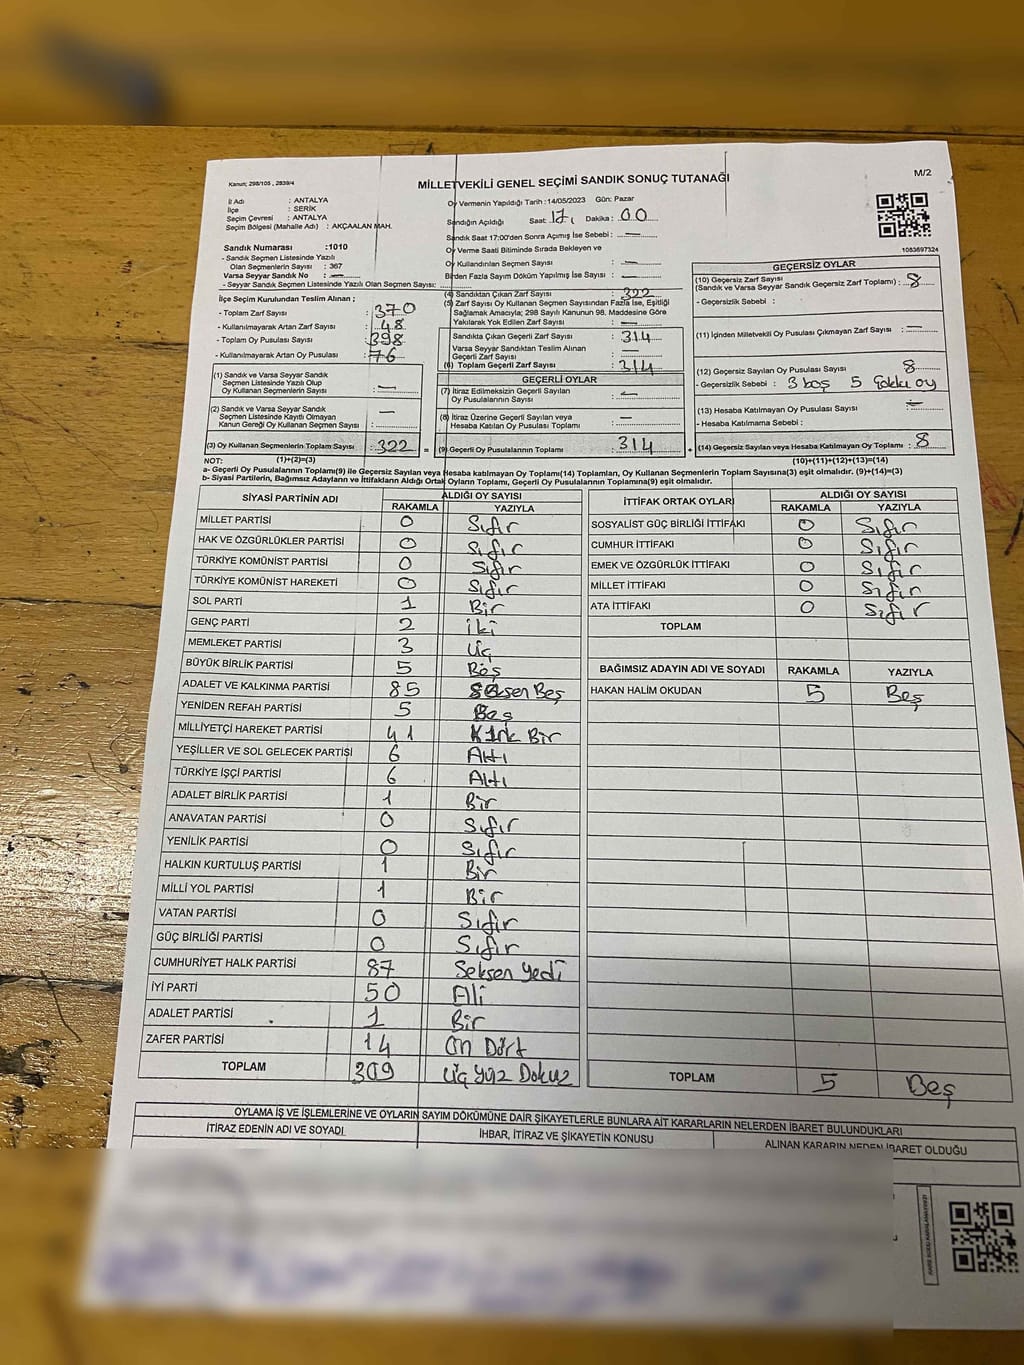 Kanun; 298/105 , 2839/4
MİLLETVEKİLİ GENEL SEÇİMİ SANDIK SONUÇ TUTANAĞI
M/2
İl Adı : ANTALYA
İlçe : SERİK
Seçim Çevresi : ANTALYA
Seçim Bölgesi (Mahalle Adı) : AKÇAALAN MAH.
Sandık Numarası :1010
- Sandık Seçmen Listesinde Yazılı
Olan Seçmenlerin Sayısı : 367
Varsa Seyyar Sandık No : —
- Seyyar Sandık Seçmen Listesinde Yazılı Olan Seçmen Sayısı:
Oy Vermenin Yapıldığı Tarih :14/05/2023 Gün: Pazar
Sandığın Açıldığı Saat: 17 Dakika: 00
Sandık Saat 17:00'den Sonra Açılmış İse Sebebi : —
Oy Verme Saati Bitiminde Sırada Bekleyen ve
Oy Kullandırılan Seçmen Sayısı : —
Birden Fazla Sayım Döküm Yapılmış İse Sayısı : —
1083697324
İlçe Seçim Kurulundan Teslim Alınan ;
- Toplam Zarf Sayısı : 370
- Kullanılmayarak Artan Zarf Sayısı : 48
- Toplam Oy Pusulası Sayısı : 398
- Kullanılmayarak Artan Oy Pusulası : 76
(1) Sandık ve Varsa Seyyar Sandık
Seçmen Listesinde Yazılı Olup
Oy Kullanan Seçmenlerin Sayısı : —
(2) Sandık ve Varsa Seyyar Sandık
Seçmen Listesinde Kayıtlı Olmayan
Kanun Gereği Oy Kullanan Seçmen Sayısı : —
(3) Oy Kullanan Seçmenlerin Toplam Sayısı : 322 =
(1)+(2)=(3)
(4) Sandıktan Çıkan Zarf Sayısı : 322
(5) Zarf Sayısı Oy Kullanan Seçmen Sayısından Fazla İse, Eşitliği
Sağlamak Amacıyla; 298 Sayılı Kanunun 98. Maddesine Göre
Yakılarak Yok Edilen Zarf Sayısı : —
Sandıkta Çıkan Geçerli Zarf Sayısı : 314
Varsa Seyyar Sandıktan Teslim Alınan
Geçerli Zarf Sayısı : —
(6) Toplam Geçerli Zarf Sayısı : 314
GEÇERLİ OYLAR
(7) İtiraz Edilmeksizin Geçerli Sayılan
Oy Pusulalarının Sayısı : —
(8) İtiraz Üzerine Geçerli Sayılan veya
Hesaba Katılan Oy Pusulası Toplamı : —
(9) Geçerli Oy Pusulalarının Toplamı : 314 +
GEÇERSİZ OYLAR
(10) Geçersiz Zarf Sayısı
(Sandık ve Varsa Seyyar Sandık Geçersiz Zarf Toplamı) : 8
- Geçersizlik Sebebi :
(11) İçinden Milletvekili Oy Pusulası Çıkmayan Zarf Sayısı : —
(12) Geçersiz Sayılan Oy Pusulası Sayısı : 8
- Geçersizlik Sebebi : 3 boş 5 Çoklu oy
(13) Hesaba Katılmayan Oy Pusulası Sayısı : —
- Hesaba Katılmama Sebebi :
(14) Geçersiz Sayılan veya Hesaba Katılmayan Oy Toplamı : 8
(10)+(11)+(12)+(13)=(14)
NOT:
a- Geçerli Oy Pusulalarının Toplamı(9) ile Geçersiz Sayılan veya Hesaba katılmayan Oy Toplamı(14) Toplamları, Oy Kullanan Seçmenlerin Toplam Sayısına(3) eşit olmalıdır. (9)+(14)=(3)
b- Siyasi Partilerin, Bağımsız Adayların ve İttifakların Aldığı Ortak Oyların Toplamı, Geçerli Oy Pusulalarının Toplamına(9) eşit olmalıdır.
SİYASİ PARTİNİN ADI ALDIĞI OY SAYISI
RAKAMLA YAZIYLA
MİLLET PARTİSİ 0 Sıfır
HAK VE ÖZGÜRLÜKLER PARTİSİ 0 Sıfır
TÜRKİYE KOMÜNİST PARTİSİ 0 Sıfır
TÜRKİYE KOMÜNİST HAREKETİ 0 Sıfır
SOL PARTİ 1 Bir
GENÇ PARTİ 2 iki
MEMLEKET PARTİSİ 3 Üç
BÜYÜK BİRLİK PARTİSİ 5 Beş
ADALET VE KALKINMA PARTİSİ 85 Seksen Beş
YENİDEN REFAH PARTİSİ 5 Beş
MİLLİYETÇİ HAREKET PARTİSİ 41 Kırk Bir
YEŞİLLER VE SOL GELECEK PARTİSİ 6 Altı
TÜRKİYE İŞÇİ PARTİSİ 6 Altı
ADALET BİRLİK PARTİSİ 1 Bir
ANAVATAN PARTİSİ 0 Sıfır
YENİLİK PARTİSİ 0 Sıfır
HALKIN KURTULUŞ PARTİSİ 1 Bir
MİLLİ YOL PARTİSİ 1 Bir
VATAN PARTİSİ 0 Sıfır
GÜÇ BİRLİĞİ PARTİSİ 0 Sıfır
CUMHURİYET HALK PARTİSİ 87 Seksen Yedi
İYİ PARTİ 50 Elli
ADALET PARTİSİ 1 Bir
ZAFER PARTİSİ 14 On Dört
TOPLAM 309 Üç Yüz Dokuz
İTTİFAK ORTAK OYLARI ALDIĞI OY SAYISI
RAKAMLA YAZIYLA
SOSYALİST GÜÇ BİRLİĞİ İTTİFAKI 0 Sıfır
CUMHUR İTTİFAKI 0 Sıfır
EMEK VE ÖZGÜRLÜK İTTİFAKI 0 Sıfır
MİLLET İTTİFAKI 0 Sıfır
ATA İTTİFAKI 0 Sıfır
TOPLAM
BAĞIMSIZ ADAYIN ADI VE SOYADI RAKAMLA YAZIYLA
HAKAN HALİM OKUDAN 5 Beş
TOPLAM 5 Beş
OYLAMA İŞ VE İŞLEMLERİNE VE OYLARIN SAYIM DÖKÜMÜNE DAİR ŞİKAYETLERLE BUNLARA AİT KARARLARIN NELERDEN İBARET BULUNDUKLARI
İTİRAZ EDENİN ADI VE SOYADI İHBAR, İTİRAZ VE ŞİKAYETİN KONUSU ALINAN KARARIN NEDEN İBARET OLDUĞU